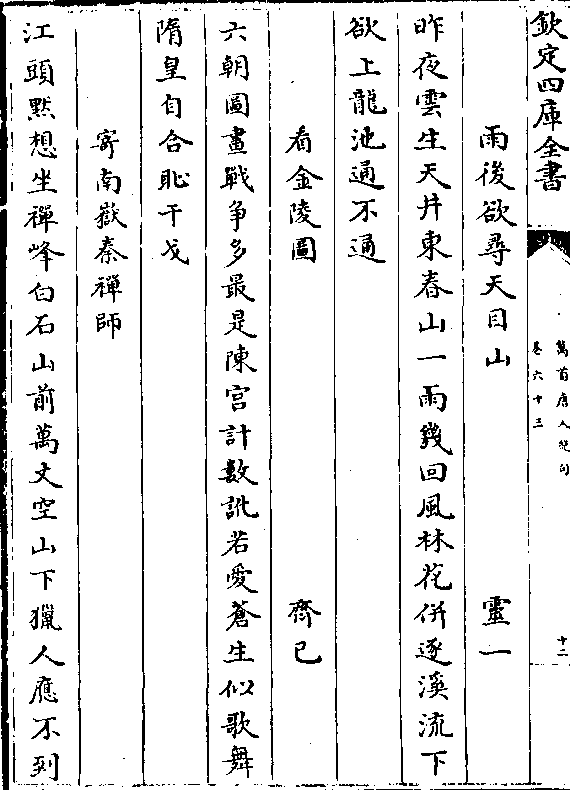 欽定四庫全書
萬首唐人絶句
卷六十三
十二
雨後欲尋天目山 靈一
昨夜雲生天井東春山一雨幾回風林花併逐溪流下
欲上龍池通不通
看金陵圖 齊已
六朝圖畫戰爭多最是陳宫計數訛若愛蒼生似歌舞
隋皇自合耻干戈
寄南嶽泰禪師
江頭黙想坐禪峰白石山前萬丈空山下獵人應不到